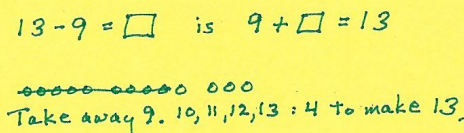 13-9=□ is 9+□=13
ooooo ooooo ooo
Take away 9. 10,11,12,13 : 4 to make 13.